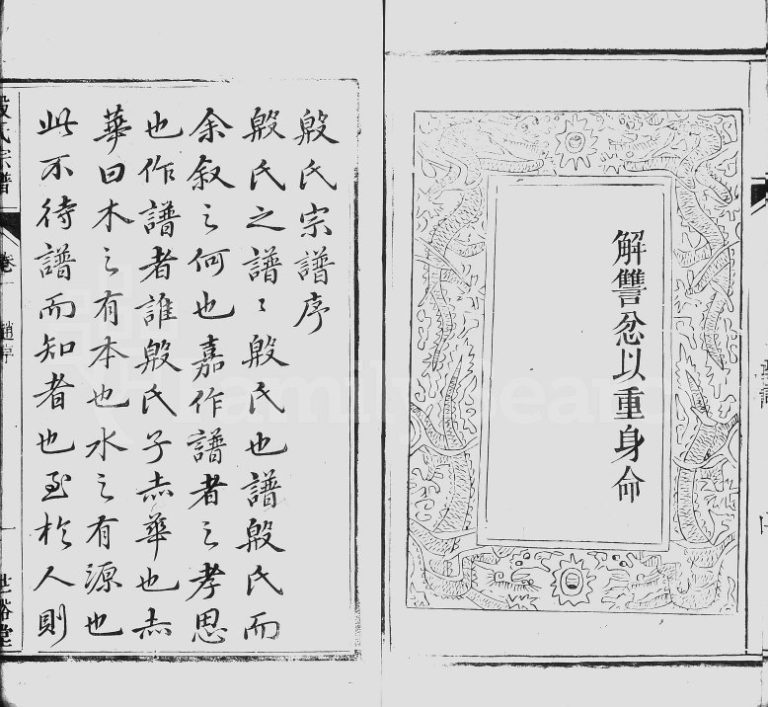 解讐忿以重身命
殷氏宗譜序
殷氏之譜〻殷氏也譜殷氏而
余叙之何也嘉作譜者之孝思
也作譜者誰殷氏子赤華也赤
華曰木之有本也水之有源也
此不待譜而知者也至於人則
殷氏宗譜
卷一
趙序
一
世裕堂
FamilySearch